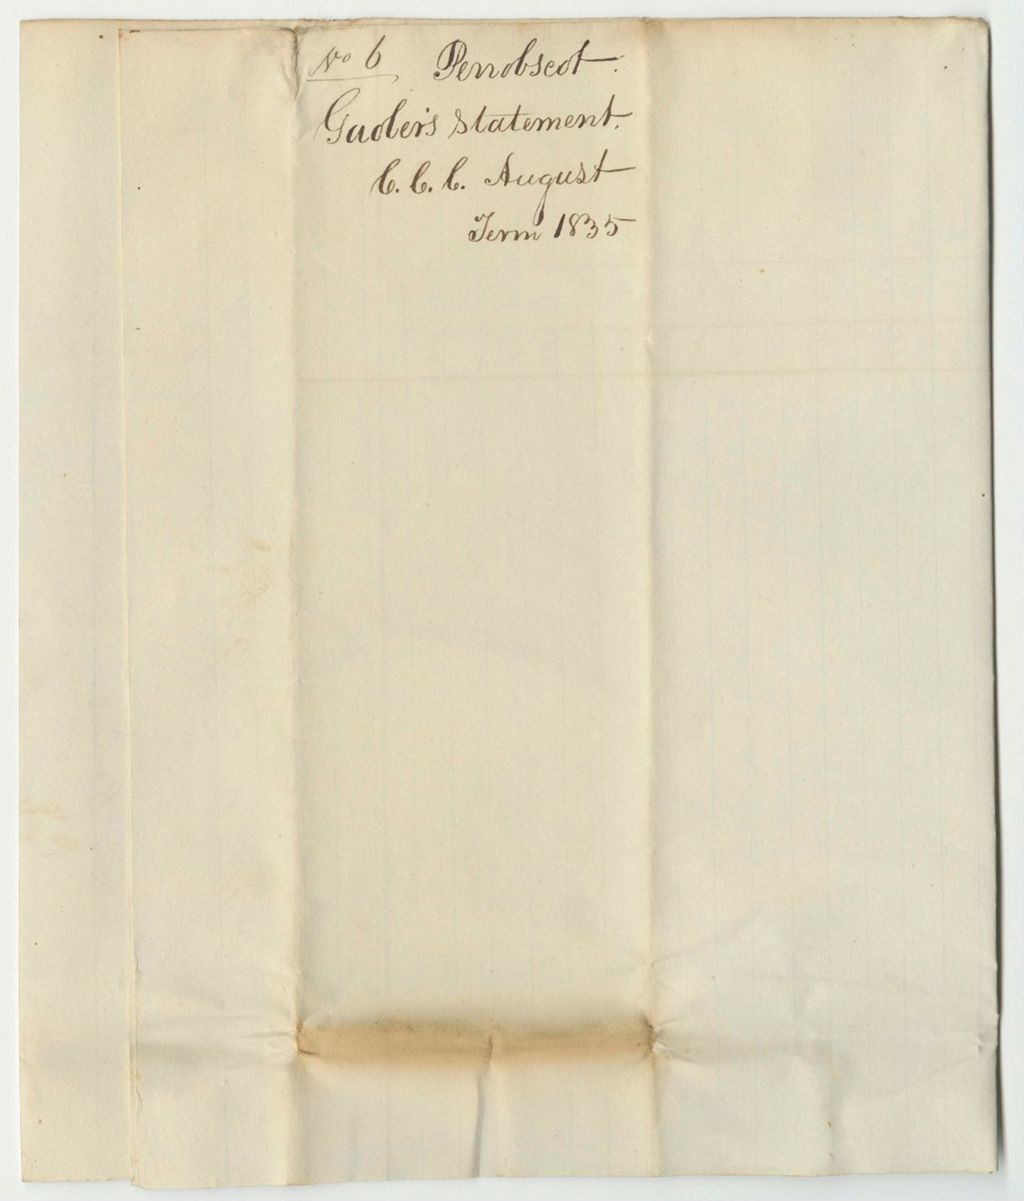 No 6 Penobscot.
Gaoler's Statement.
C. C. C. August
Term 1835